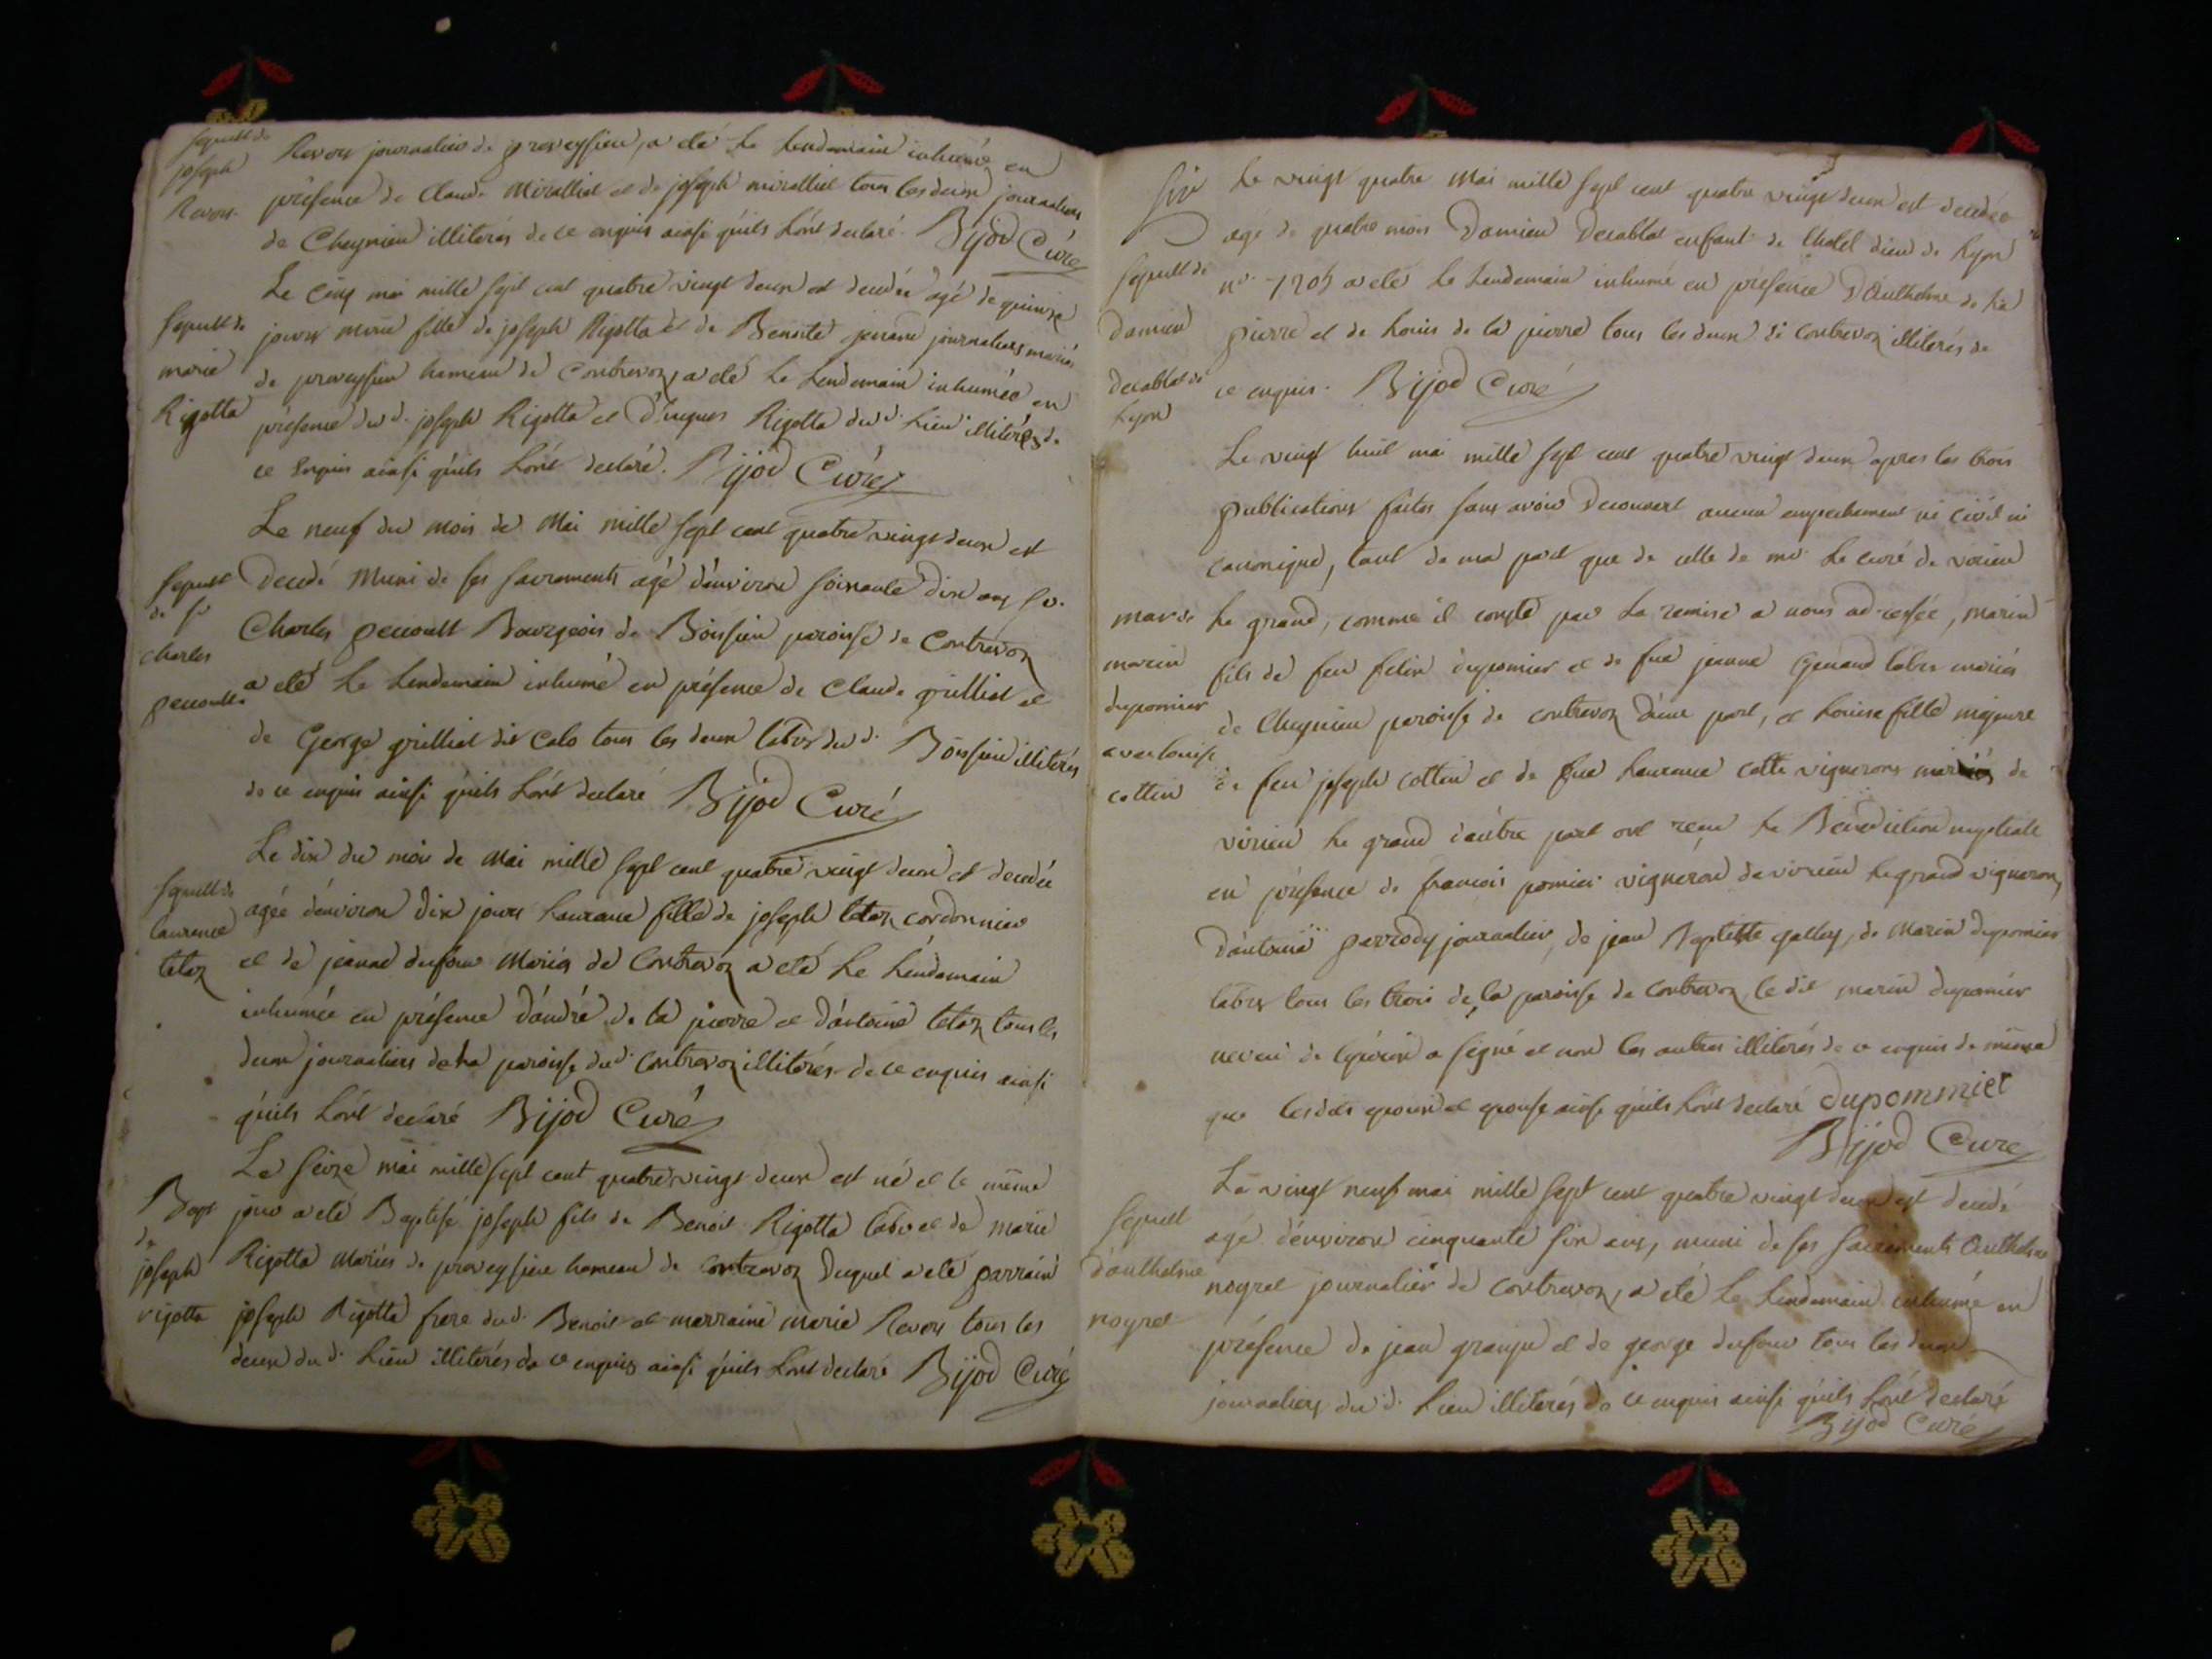 Sepult de
joseph
Revon.
Revon journalier de proveyssieu, a eté le lendemain inhumé en
présence de Claude Miralliet et de joseph miralliet tous les deux journaliers
de Cheynieu illiterés de ce enquis ainsi qu'ils l'ont declaré. Bijod Curé
Sepult de
marie
Rigotta
Le cinq mai mille sept cent quatre vingt deux est decedée agé de quinze
jours marie fille de joseph Rigotta et de Benoite journaliers mariés
de proveyssieu hameau de Contrevoz, a eté le lendemain inhumée en
présence du d. joseph Rigotta et d'hugues Rigotta du d. lieu illiterés de
ce enquis ainsi qu'ils l'ont declaré. Bijod Curé
Sepult
de sr
charles
Le neuf du mois de Mai mille sept cent quatre vingt deux est
Decedé Muni de ses sacrements agé d'environ soixante dix ans sr.
Charles Bourgeois de Boissieu paroisse de Contrevoz
a eté le lendemain inhumé en présence de Claude grilliet et
de George grilliet dit Calo tous les deux labrs du d. Boissieu illiterés
de ce enquis ainsi qu'ils l'ont declaré Bijod Curé
Sepult de
laurence
tetaz
Le dix du mois de Mai mille sept cent quatre vingt deux est decedée
agée d'environ dix jours laurence fille de joseph tetaz cordonnier
et de jeanne dufour Mariés de Contrevoz a eté le lendemain
inhumée en présence d'andré de la pierre et d'antoine tetaz tous les
deux journaliers de la paroisse du d. Contrevoz illiterés de ce enquis ainsi
qu'ils l'ont declaré Bijod Curé
Bapt
de
joseph
rigotta
Le seize mai mille sept cent quatre vingt deux est né et le même
jour a eté Baptisé joseph fils de Benoit Rigotta labr et de marie
Rigotta Mariés de proveyssieu hameau de Contrevoz duquel a eté parrain
joseph Rigotta frere du d. Benoit et marraine marie Revon tous les
deux du d. lieu illiterés de ce enquis ainsi qu'ils l'ont declaré Bijod Curé
Six
Sepult de
Damien
Decablat de
Lyon
Le vingt quatre Mai mille sept cent quatre vingt deux est decedée
agé de quatre mois Damien Decablat enfant de l'hotel dieu de Lyon
no. 1205 a eté le lendemain inhumé en présence d'Anthelme de la
pierre et de Louis de la pierre tous les deux de Contrevoz illiterés de
ce enquis. Bijod Curé
mar de
marin
dupomier
avec louise
cottin
Le vingt huit mai mille sept cent quatre vingt deux apres les trois
publications faites sans avoir decouvert aucun empechement ni civil ni
canonique, tant de ma part que de celle de mr. le curé de virieu
le grand, comme il conste par la remise a nous adressée, marin
fils de feu felix dupomier et de fue jeanne labrs mariés
de Cheynieu paroisse de contrevoz d'une part, et Louise fille majeure
de feu joseph cottin et de fue laurence cotte vignerons mariés de
virieu le grand d'autre part ont recu la Benediction nuptiale
en présence de francois pomier vigneron de virieu le grand vigneron,
d'antoine parrody journalier, de jean Baptiste galley, de Marin dupomier
labrs tous les trois de la paroisse de contrevoz le dit marin dupomier
neveu de l'epoux a signé et non les autres illiterés de ce enquis de même
que les dits epoux et epouse ainsi qu'ils l'ont declaré dupommier
Bijod Curé
Sepult
d'anthelme
noyret
Le vingt neuf mai mille sept cent quatre vingt deux est decedé
agé d'environ cinquante six ans, muni de ses sacrements Anthelme
noyret journalier de contrevoz, a eté le lendemain inhumé en
présence de jean granju et de george dufour tous les deux
journaliers du d. lieu illiterés de ce enquis ainsi qu'ils l'ont declaré
Bijod Curé